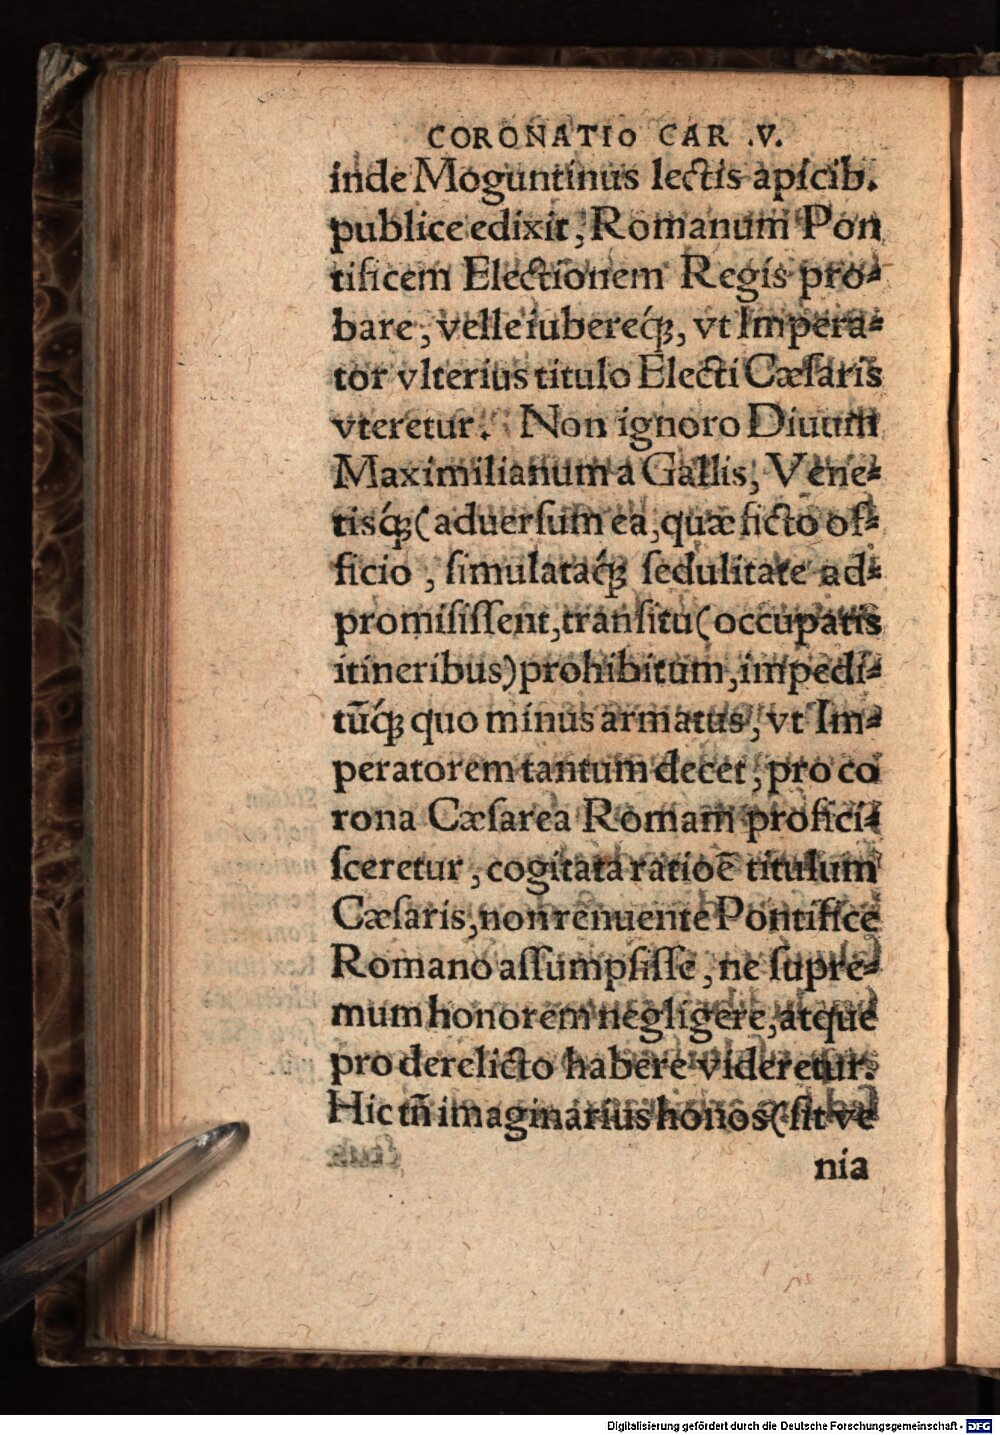 CORONATIO CAR .V.
inde Moguntinus lectis apicib.
publice edixit, Romanum Pon
tificem Electionem Regis pro⸗
bare, velle iubereq́ꝫ, vt Impera⸗
tor vlterius titulo Electi Cæſaris
vteretur. Non ignoro Diuum
Maximilianum a Gallis, Vene⸗
tisq́ꝫ (aduerſum ea, quæ ficto of⸗
ficio, ſimulataq́ꝫ ſedulitate ad⸗
promiſiſſent, tranſitu (occupatis
itineribus) prohibitum, impedi⸗
tūq́ꝫ quo minus armatus, vt Im⸗
peratorem tantum decet, pro co
rona Cæſarea Romam profici⸗
ſceretur, cogitata ratioē titulum
Cæſaris, non renuente Pontifice
Romano aſſumpſiſſe, ne ſupre⸗
mum honorem negligere, atque
pro derelicto habere videretur.
Hic tñ imaginarius honos (ſit ve
nia
Digitalisierung gefördert durch die Deutsche Forschungsgemeinschaft - DFG